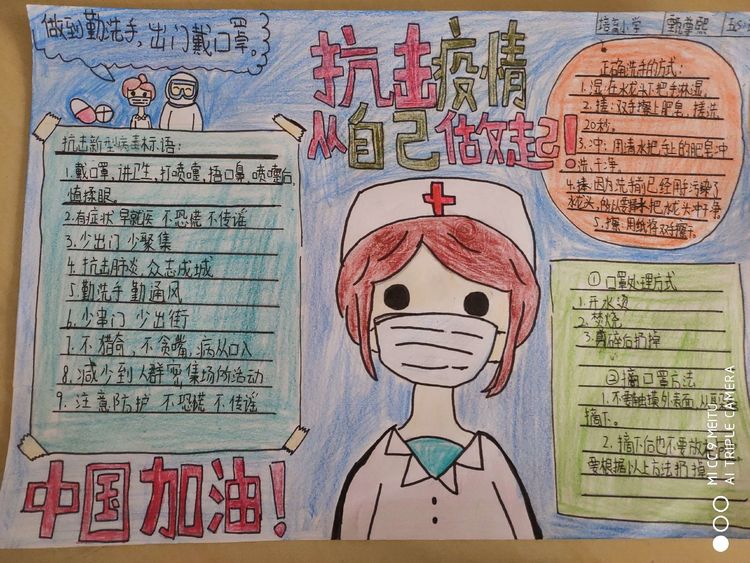 做到勤洗手,出门戴口罩。
抗击疫情
从自己做起!
培育小学
抗击新型病毒标语:
1.戴口罩,讲卫生,打喷嚏,捂口鼻,喷嚏后,
慎揉眼。
2.有症状 早就医 不恐慌 不传谣
3.少出门 少聚集
4.抗击肺炎,众志成城
5.勤洗手 勤通风
6.少串门 少出街
7.不猎奇,不贪嘴,病从口入
8.减少到人群密集场所活动
9.注意防护 不恐慌 不传谣
中国加油!
正确洗手的方式:
1.湿:在水龙头下把手淋湿。
2.搓:双手擦上肥皂,搓洗
20秒。
3.冲:用清水把手上的肥皂冲
洗干净。
4.捧:因为洗手前已经用手污染了
水龙头,所以要捧水把水龙头冲干净。
5.擦:用纸将双手擦干。
①口罩处理方式
1.开水烫
2.焚烧
3.剪碎后扔掉
②摘口罩方法
1.不要触摸外表面,从
摘下。
2.摘下后也不要放
要根据以上方法扔掉
MI CC9 MEITU
AI TRIPLE CAMERA